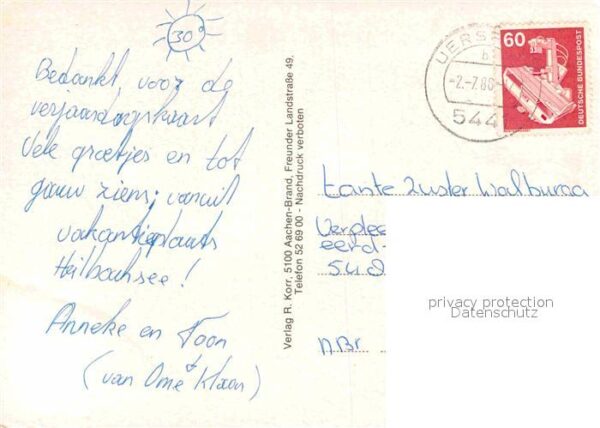 30°
Bedankt voor de
verjaardagskaart
Vele groetjes en tot
gauw ziens, vanuit
vakantieplaats
Heilbachsee!
Anneke en Toon
(van Ome Klaas)
Verlag R. Korr, 5100 Aachen-Brand, Freunder Landstraße 49,
Telefon 52 69 00 - Nachdruck verboten
UERS
-2.-7.86
544
60
DEUTSCHE BUNDESPOST
tante Zuster Walburga
Verplee
eerd-
privacy protection
Datenschutz
NBr